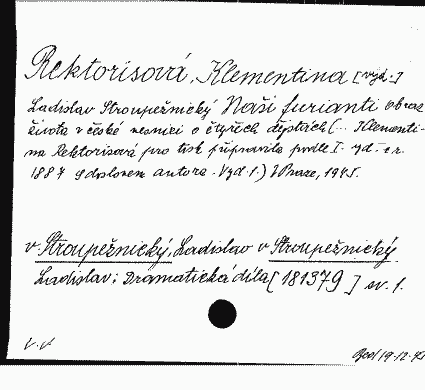 Rektorisová, Klementina [vyd.]
Ladislav Stroupežnický Naši furianti obraz
života v české vesnici o čtyřech dějstách (... Klementi-
na Rektorisová pro tisk připravila podle I. vyd. z r.
1887 a doslovem autora. Vyd. 1.) V Praze, 1945.
v. Stroupežnický, Ladislav v Stroupežnický
Ladislav: Dramatická díla [181379] sv. 1.
V. V.
19.12.